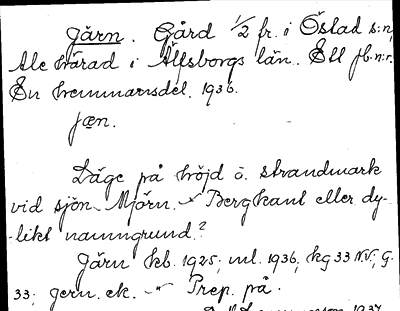 Järn. Gård 1/2 fr. i Östad s:n,
Ale härad i Älfsborgs län. Ett jb.n:r.
En hemmansdel. 1936.
jæn.
Läge på höjd o. strandmark
vid sjön Mjörn. -"- Bergkant eller dy-
-likt namngrund?
Järn kb. 1925; ml. 1936, kg 33 NV; G.
33; gern. ek. -"- Prep. på.
1937